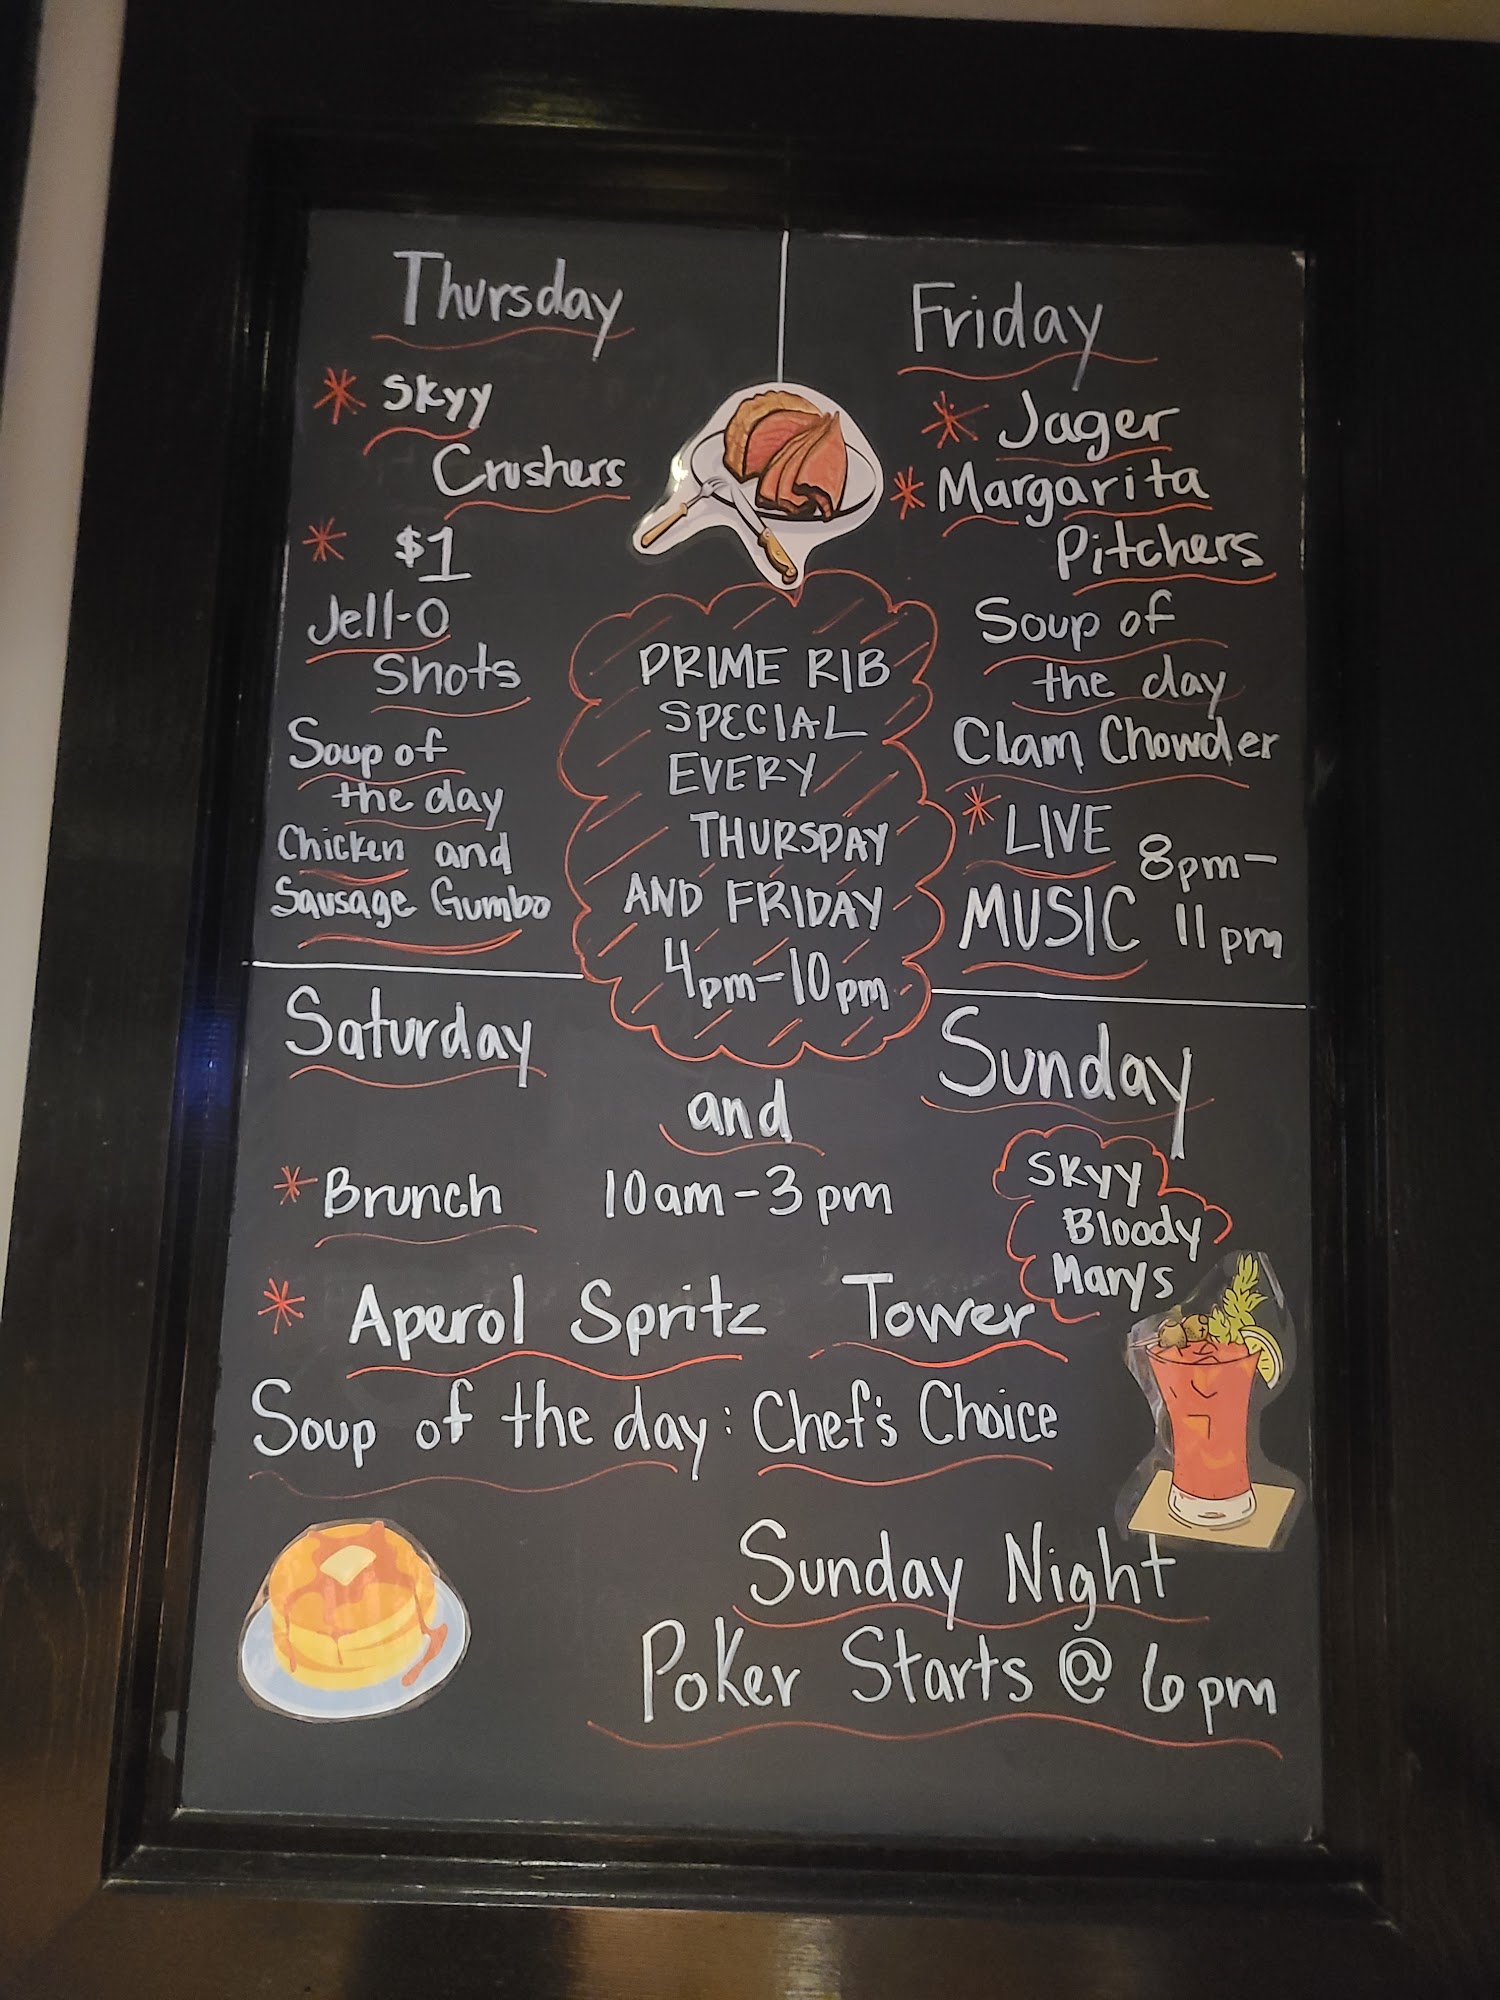 Thursday
* Skyy
Crushers
* $1
Jell-O
Shots
Soup of
the day
Chicken and
Sausage Gumbo
Friday
* Jager
* Margarita
Pitchers
Soup of
the day
Clam Chowder
* LIVE 8pm-
MUSIC 11pm
PRIME RIB
SPECIAL
EVERY
THURSDAY
AND FRIDAY
4pm-10pm
Saturday
and
Sunday
* Brunch 10am-3pm
* Aperol Spritz Tower
Soup of the day: Chef's Choice
SKyy
Bloody
Marys
Sunday Night
Poker Starts @ 6pm